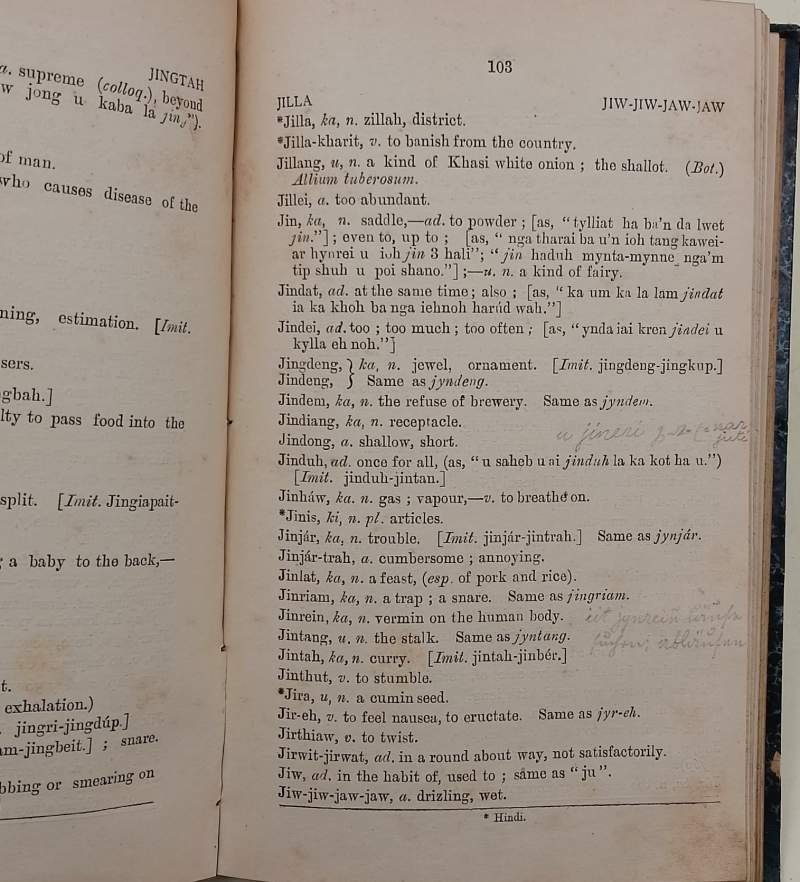 JINGTAH
a. supreme (colloq.), beyond
w jong u kaba la jin,").
of man.
who causes disease of the
ning, estimation. [Imit.
sers.
gbah.]
lty to pass food into the
split. [Imit. Jingiapait-
; a baby to the back,—
t.
exhalation.)
. jingri-jingdúp.]
am-jingbeit.] ; snare.
bbing or smearing on
103
JILLA JIW-JIW-JAW-JAW
*Jilla, ka, n. zillah, district.
*Jilla-kharit, v. to banish from the country.
Jillang, u, n. a kind of Khasi white onion ; the shallot. (Bot.)
Allium tuberosum.
Jillei, a. too abundant.
Jin, ka, n. saddle,—ad. to powder ; [as, "tylliat ha ba'n da lwet
jin."] ; even to, up to ; [as, "nga tharai ba u'n ioh tang kawei-
ar hynrei u ioh jin 3 hali"; "jin haduh mynta-mynne nga'm
tip shuh u poi shano."] ;—u. n. a kind of fairy.
Jindat, ad. at the same time; also ; [as, "ka um ka la lam jindat
ia ka khoh ba nga iehnoh harúd wah."]
Jindei, ad. too ; too much ; too often ; [as, "ynda iai kren jindei u
kylla eh noh."]
Jingdeng, } ka, n. jewel, ornament. [Imit. jingdeng-jingkup.]
Jindeng, } Same as jyndeng.
Jindem, ka, n. the refuse of brewery. Same as jyndem.
Jindiang, ka, n. receptacle.
Jindong, a. shallow, short.
Jinduh, ad. once for all, (as, "u saheb u ai jinduh la ka kot ha u.")
[Imit. jinduh-jintan.]
Jinháw, ka. n. gas ; vapour,—v. to breathe on.
*Jinis, ki, n. pl. articles.
Jinjár, ka, n. trouble. [Imit. jinjár-jintrah.] Same as jynjár.
Jinjár-trah, a. cumbersome ; annoying.
Jinlat, ka, n. a feast, (esp. of pork and rice).
Jinriam, ka, n. a trap ; a snare. Same as jingriam.
Jinrein, ka, n. vermin on the human body.
Jintang, u. n. the stalk. Same as jyntang.
Jintah, ka, n. curry. [Imit. jintah-jinbér.]
Jinthut, v. to stumble.
*Jira, u, n. a cumin seed.
Jir-eh, v. to feel nausea, to eructate. Same as jyr-eh.
Jirthiaw, v. to twist.
Jirwit-jirwat, ad. in a round about way, not satisfactorily.
Jiw, ad. in the habit of, used to ; same as "ju".
Jiw-jiw-jaw-jaw, a. drizling, wet.
* Hindi.